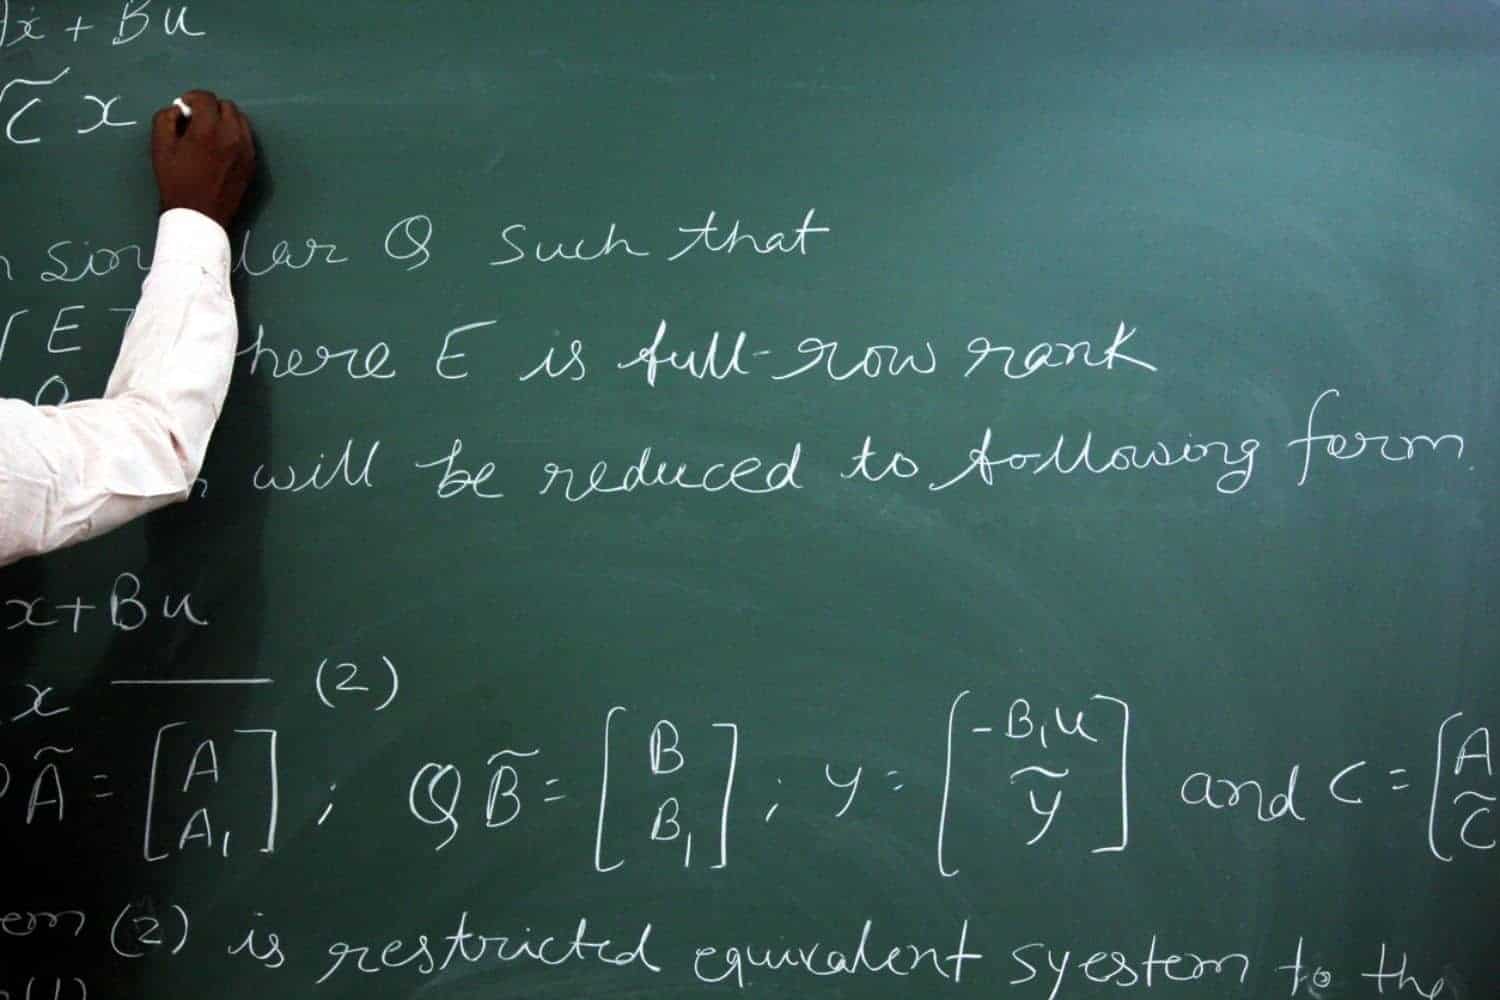 ẋ + Bu
C̃ x
lar Q such that
[ E
here E is full-row rank
0
will be reduced to following form
x + Bu
x ——— (2)
Ã = [ A A₁ ] ; Q B̃ = [ B B₁ ] ; y = [ -B₁u ỹ ] and C = [ A C̃
(2) is restricted equivalent syestem to the
(1)